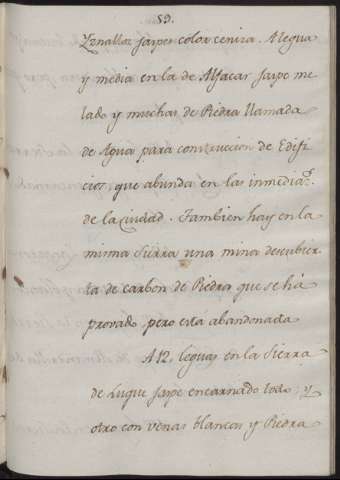 59.
Yznalloz jaspes color ceniza. A legua
y media en la de Alfacar jaspe me
lado y muchas de Piedra llamada
de Agua para construccion de Edifi
cios, que abunda en las inmedia.s
de la Ciudad. Tambien hay en la
misma Sierra una mina descubier
ta de carbon de Piedra que se há
provado, pero está abandonada
A 12, leguas en la Sierra
de Luque jaspe encarnado todo, y
otro con venas blancas y Piedra